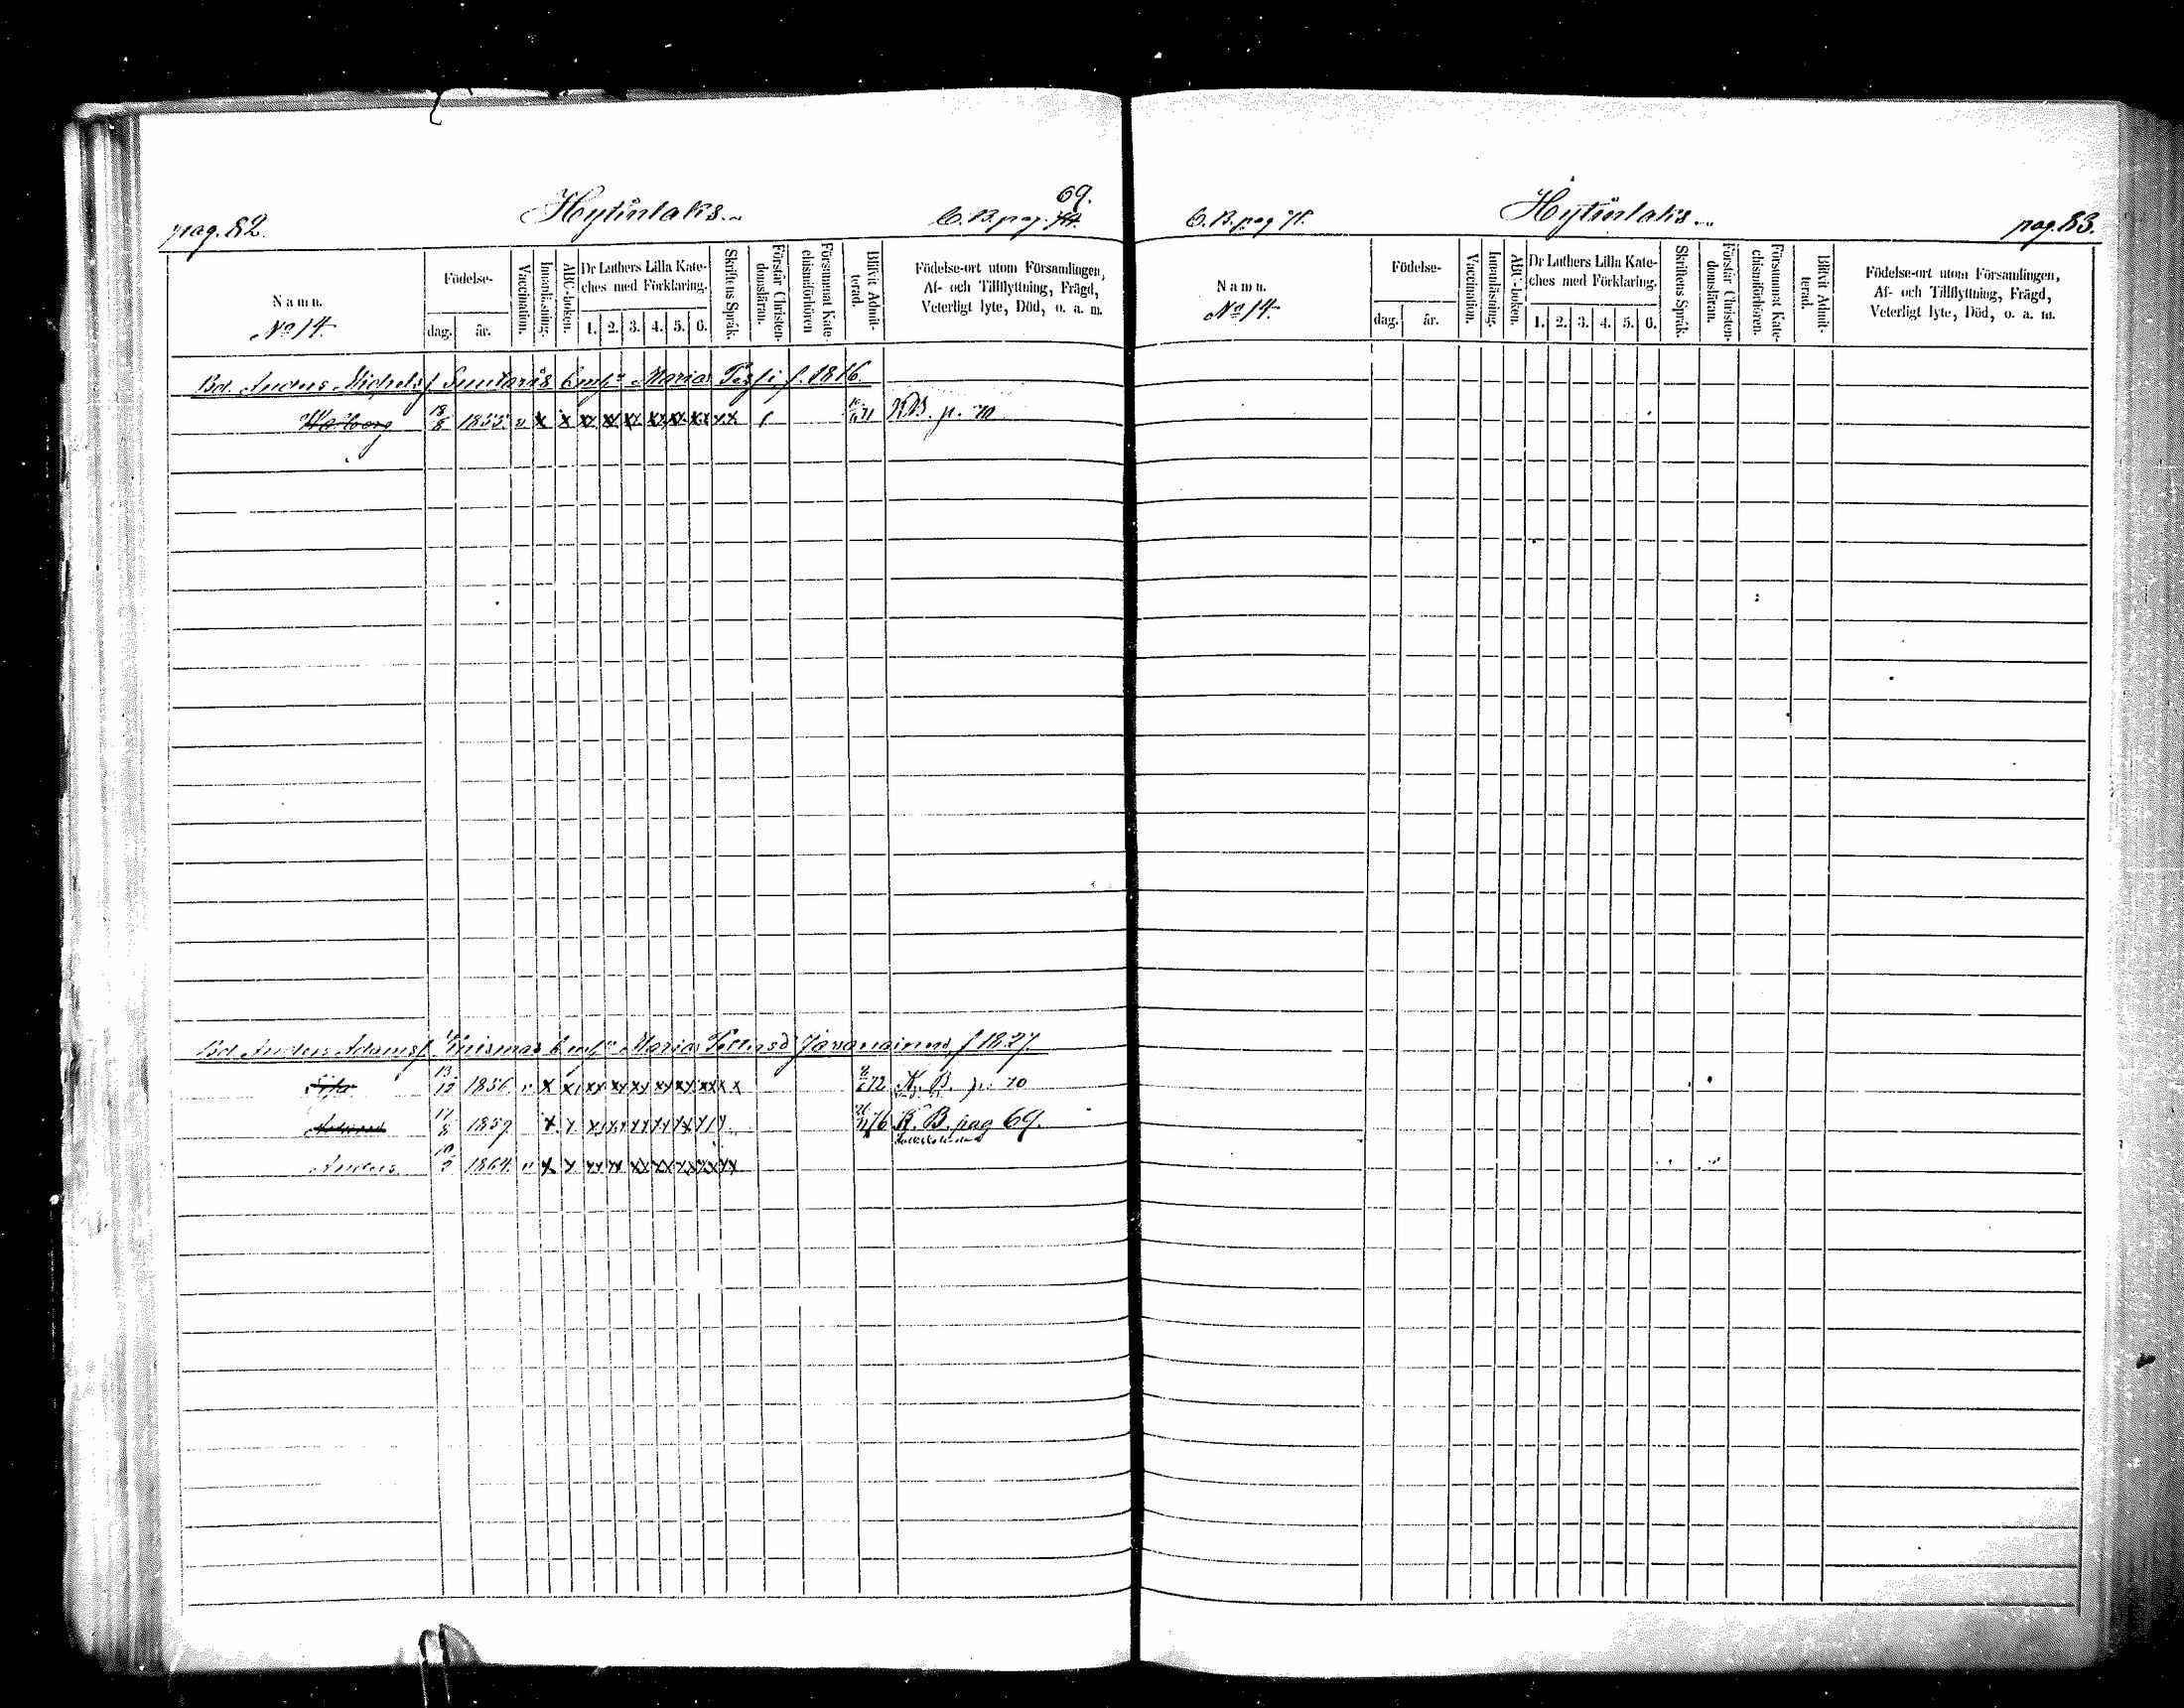 pag. 82.
Hytinlaks.
C. B. pag. 74. 69.
Namn.
No 14.
Födelse-
dag.
år.
Vaccination.
Innanläsning.
ABC-boken.
Dr Luthers Lilla Kate-
ches med Förklaring.
1. 2. 3. 4. 5. 6.
Skriftens Språk.
Förstår Christen-
domsläran.
Försummat Kate-
chismiförhören
Blifvit Admit-
terad.
Födelse-ort utom Församlingen,
Af- och Tillflyttning, Frägd,
Veterligt lyte, Död, o. a. m.
Bd. Anders Michelsf. Maria f. 1816.
Walborg 18/8 1855. v x x xx xx xx xx xx xx xx 71 K.B. p. 70
Bd. Anders Adamsf. Maria Pettersd Javanainen f 1827.
13/12 1856 v x x xx xx xx xx xx xx x 72 K. B. p. 70
17/8 1859. x x xx xx xx xx xx 76 K. B. pag 69.
Anders 1864. v x x xx xx xx xx xx xx xx
C. B. pag 71.
Hytinlaks.
pag. 83.
Namn.
No 14.
Födelse-
dag.
år.
Vaccination.
Innanläsning.
ABC-boken.
Dr Luthers Lilla Kate-
ches med Förklaring.
1. 2. 3. 4. 5. 6.
Skriftens Språk.
Förstår Christen-
domsläran.
Försummat Kate-
chismiförhören.
Blifvit Admit-
terad.
Födelse-ort utom Församlingen,
Af- och Tillflyttning, Frägd,
Veterligt lyte, Död, o. a. m.